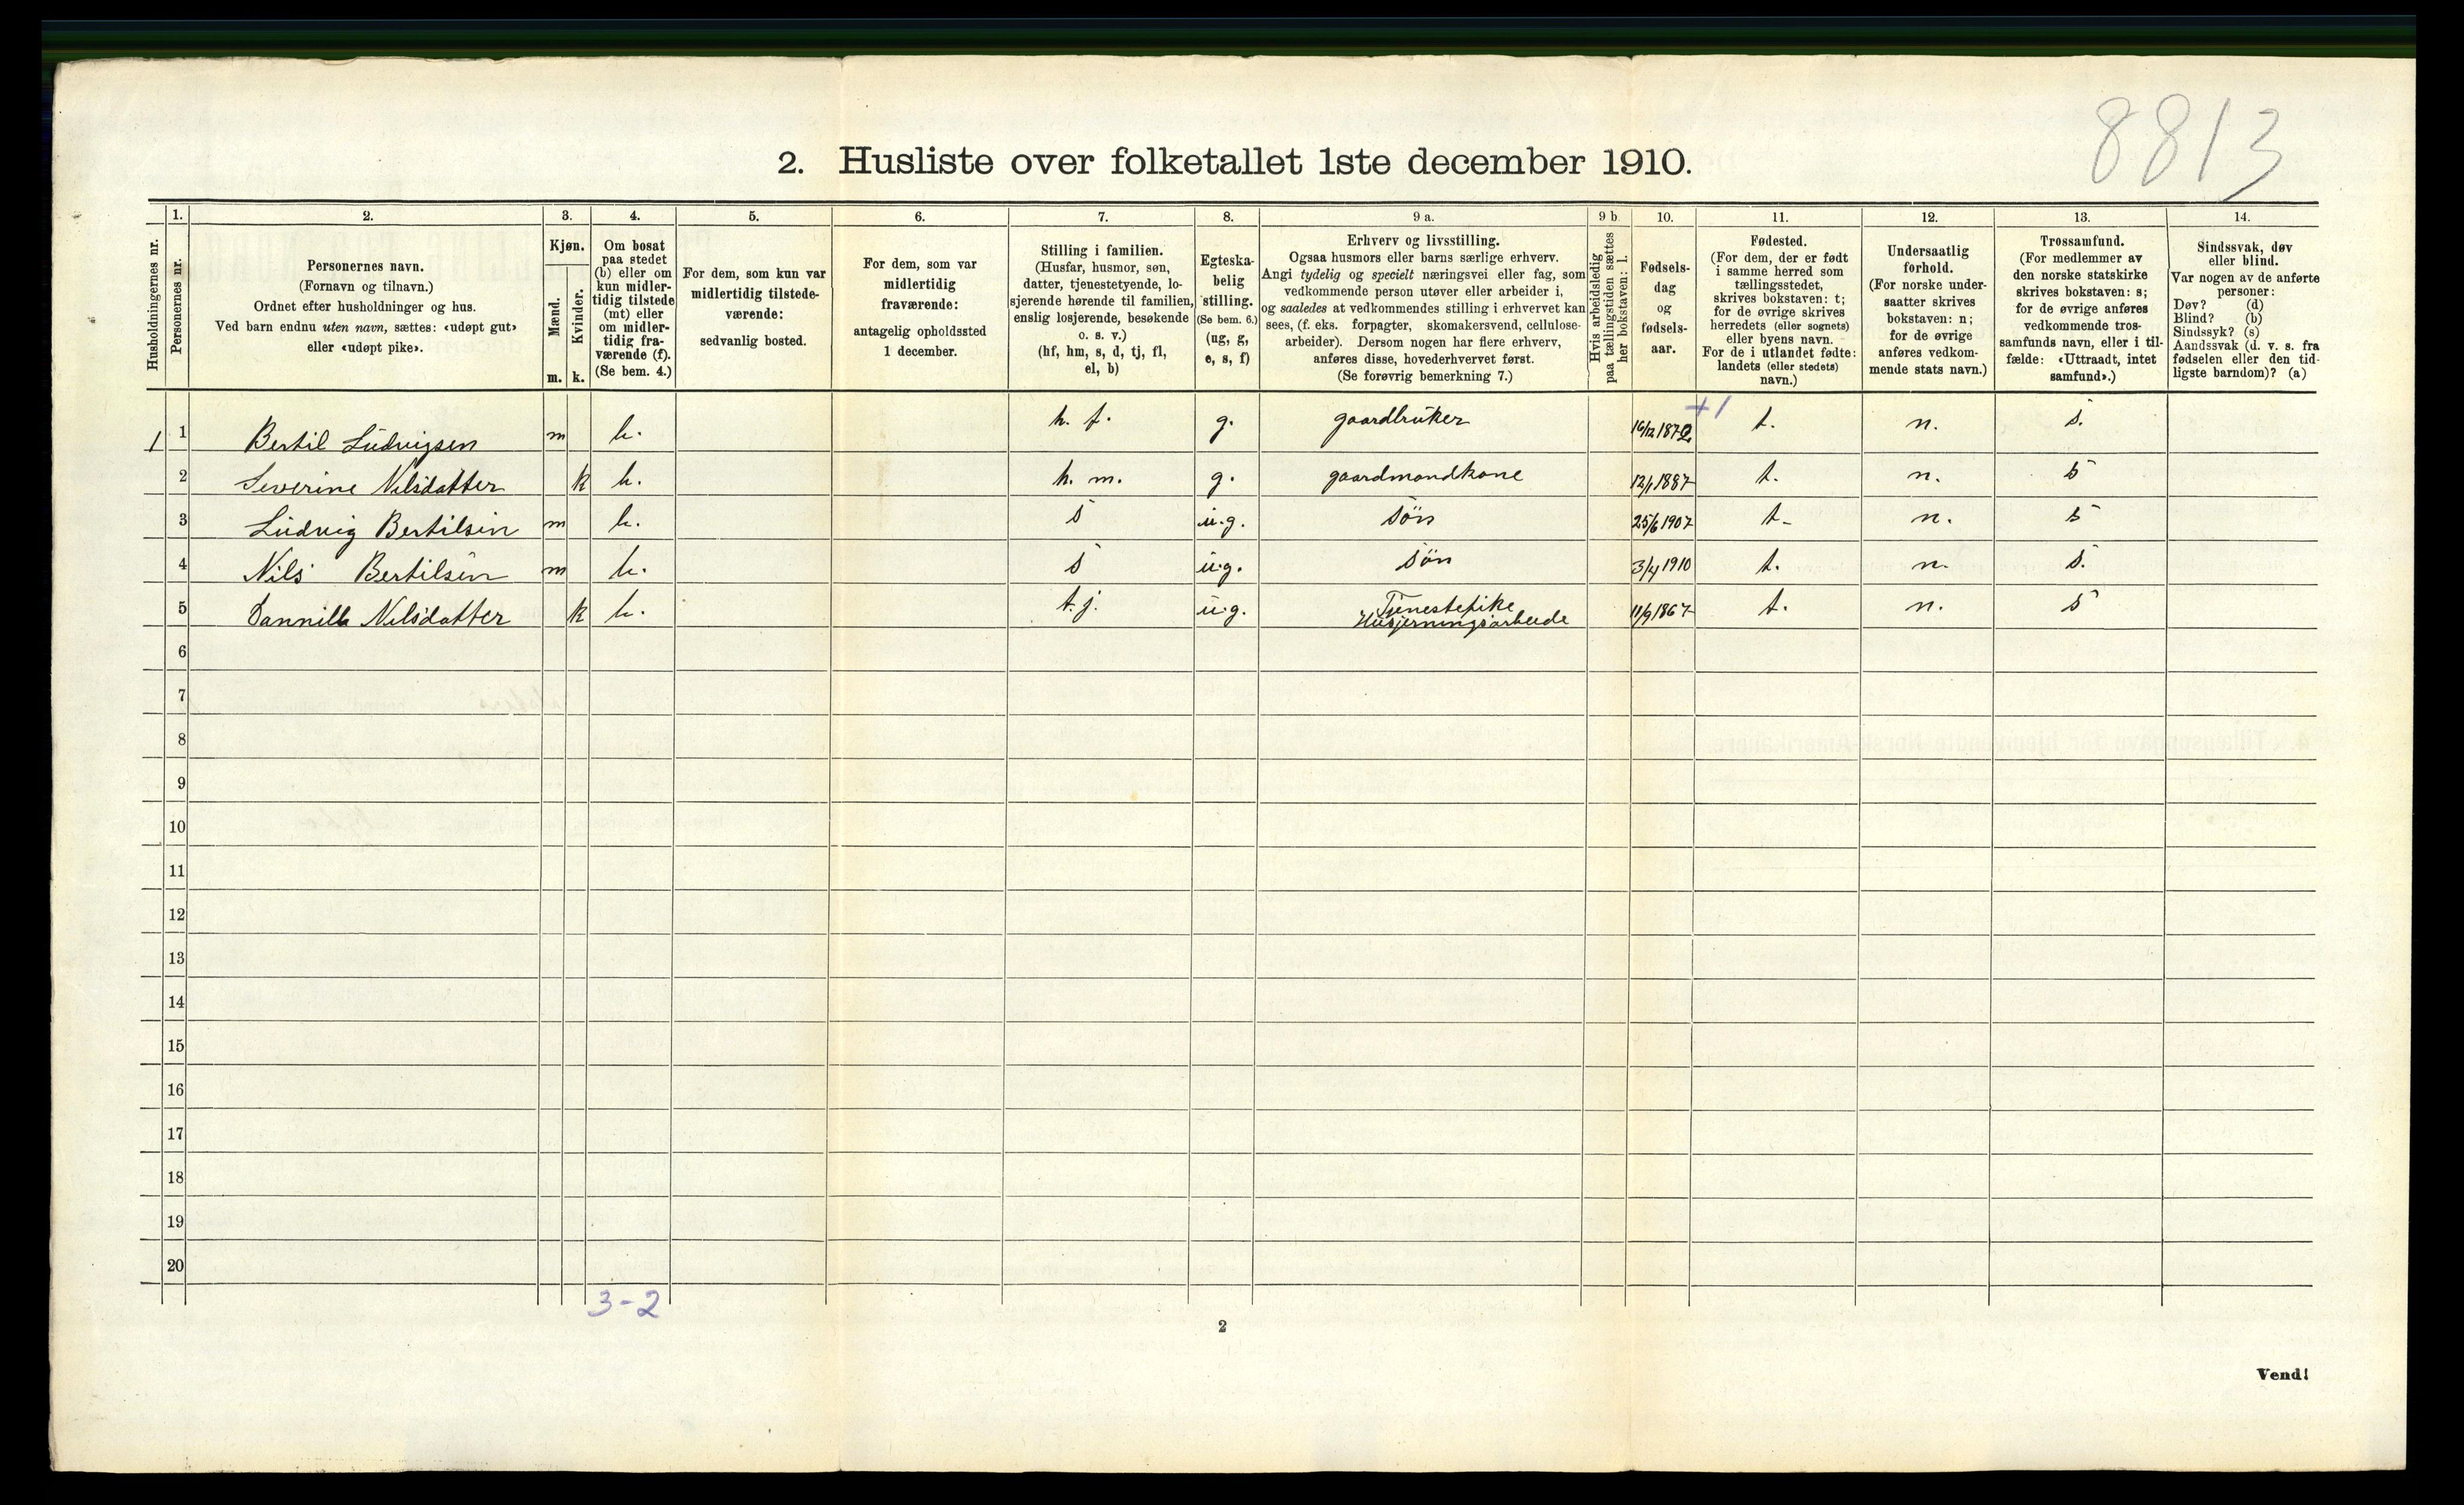 8813
2. Husliste over folketallet 1ste december 1910.
Husholdningernes nr.
1.
Personernes nr.
2.
Personernes navn.
(Fornavn og tilnavn.)
Ordnet efter husholdninger og hus.
Ved barn endnu uten navn, sættes: «udøpt gut»
eller «udøpt pike».
3.
Kjøn.
Mænd.
m.
Kvinder.
k.
4.
Om bosat
paa stedet
(b) eller om
kun midler-
tidig tilstede
(mt) eller
om midler-
tidig fra-
værende (f).
(Se bem. 4.)
5.
For dem, som kun var
midlertidig tilstede-
værende:
sedvanlig bosted.
6.
For dem, som var
midlertidig
fraværende:
antagelig opholdssted
1 december.
7.
Stilling i familien.
(Husfar, husmor, søn,
datter, tjenestetyende, lo-
sjerende hørende til familien,
enslig losjerende, besøkende
o. s. v.)
(hf, hm, s, d, tj, fl,
el, b)
8.
Egteska-
belig
stilling.
(Se bem. 6.)
(ug, g,
e, s, f)
9 a.
Erhverv og livsstilling.
Ogsaa husmors eller barns særlige erhverv.
Angi tydelig og specielt næringsvei eller fag, som
vedkommende person utøver eller arbeider i,
og saaledes at vedkommendes stilling i erhvervet kan
sees, (f. eks. forpagter, skomakersvend, cellulose-
arbeider). Dersom nogen har flere erhverv,
anføres disse, hovederhvervet først.
(Se forøvrig bemerkning 7.)
9 b.
Hvis arbeidsledig
paa tællingstiden sættes
her bokstaven: l.
10.
Fødsels-
dag
og
fødsels-
aar.
11.
Fødested.
(For dem, der er født
i samme herred som
tællingsstedet,
skrives bokstaven: t;
for de øvrige skrives
herredets (eller sognets)
eller byens navn.
For de i utlandet fødte:
landets (eller stedets)
navn.)
12.
Undersaatlig
forhold.
(For norske under-
saatter skrives
bokstaven: n;
for de øvrige
anføres vedkom-
mende stats navn.)
13.
Trossamfund.
(For medlemmer av
den norske statskirke
skrives bokstaven: s;
for de øvrige anføres
vedkommende tros-
samfunds navn, eller i til-
fælde: «Uttraadt, intet
samfund».)
14.
Sindssvak, døv
eller blind.
Var nogen av de anførte
personer:
Døv? (d)
Blind? (b)
Sindssyk? (s)
Aandssvak (d. v. s. fra
fødselen eller den tid-
ligste barndom)? (a)
+1
1 1 Bertil Ludvigsen m b. h. f. g. gaardbruker 16/12 1872 t. n. s.
2 Severine Nilsdatter k b. h. m. g. gaardmandkone 12/1 1887 t. n. s
3 Ludvig Bertilsen m b. s u.g. søn 25/6 1907 t- n. s
4 Nils Bertilsen m b. s u.g. søn 3/4 1910 t. n. s.
5 Dannill Nilsdatter k b. t.j. u.g. Tjenestepike 11/9 1867 t. n. s
Husjerningsarbeide
6
7
8
9
10
11
12
13
14
15
16
17
18
19
20
3-2
2
Vend!